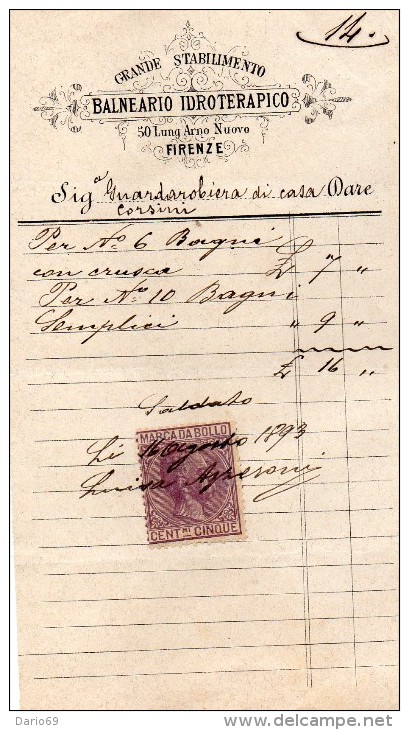 14.
GRANDE STABILIMENTO
BALNEARIO IDROTERAPICO
50 Lung Arno Nuovo
FIRENZE
Sigª Guardarobiera di casa Dare
Corsini
Per Nº 6 Bagni
con crusca £ 7 "
Per Nº 10 Bagni
Semplici " 9 "
£ 16 "
Saldato
MARCA DA BOLLO
Li 16 Agosto 1893
Luisa
CENT.MI CINQUE
Dario69
delcampe.net